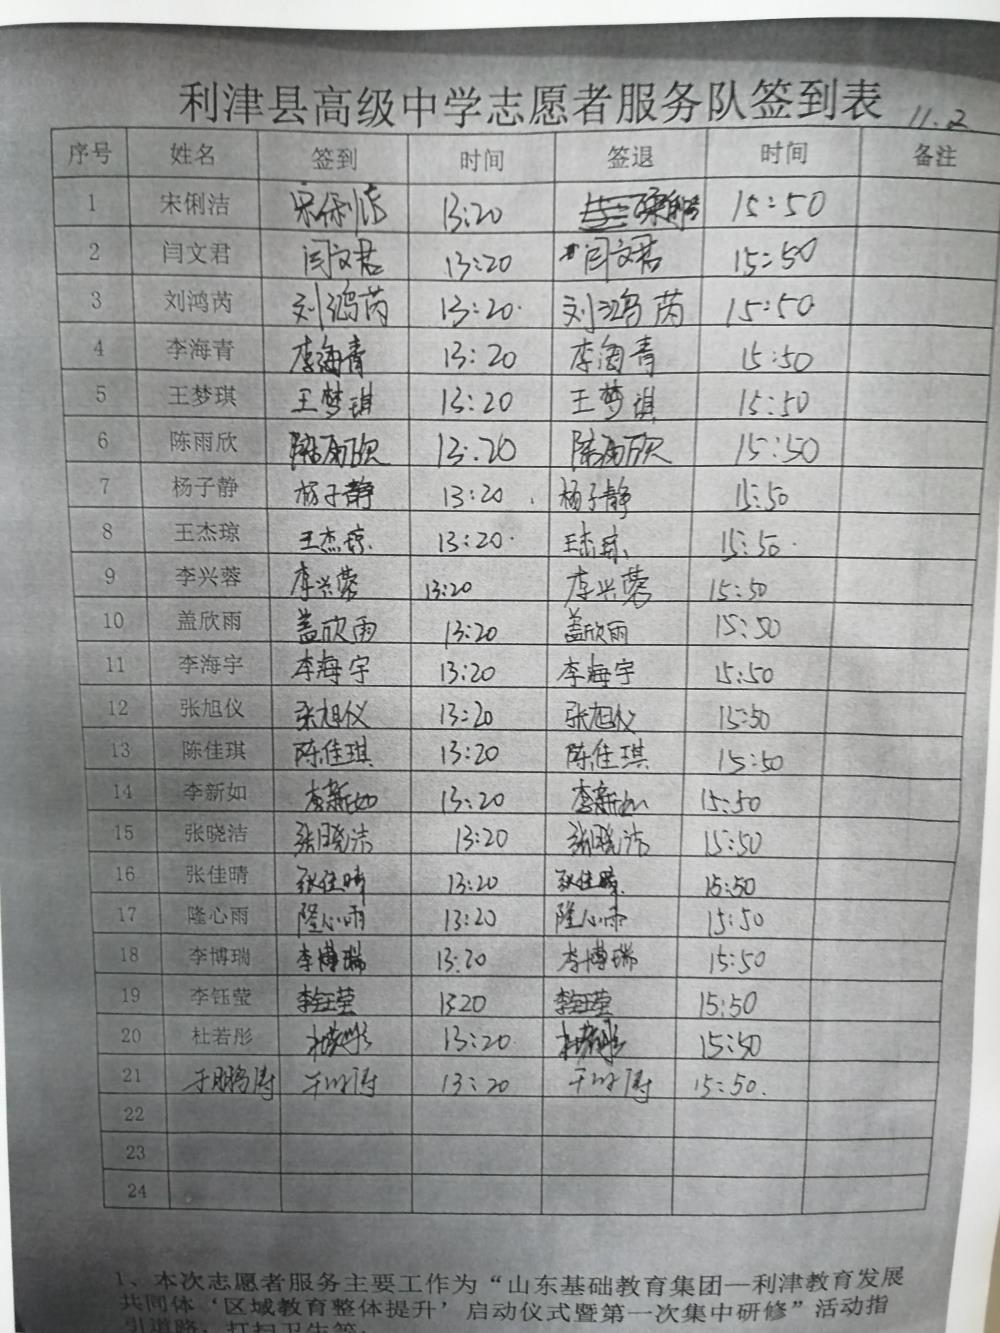 利津县高级中学志愿者服务队签到表 11.2
序号 姓名 签到 时间 签退 时间 备注
1 宋俐洁 宋俐洁 13:20 15:50
2 闫文君 闫文君 13:20 闫文君 15:50
3 刘鸿芮 刘鸿芮 13:20 刘鸿芮 15:50
4 李海青 李海青 13:20 李海青 15:50
5 王梦琪 王梦琪 13:20 王梦琪 15:50
6 陈雨欣 陈雨欣 13:20 陈雨欣 15:50
7 杨子静 杨子静 13:20 杨子静 15:50
8 王杰琼 王杰琼 13:20 王杰琼 15:50
9 李兴蓉 李兴蓉 13:20 李兴蓉 15:50
10 盖欣雨 盖欣雨 13:20 盖欣雨 15:50
11 李海宇 李海宇 13:20 李海宇 15:50
12 张旭仪 张旭仪 13:20 张旭仪 15:50
13 陈佳琪 陈佳琪 13:20 陈佳琪 15:50
14 李新如 李新如 13:20 李新如 15:50
15 张晓洁 张晓洁 13:20 张晓洁 15:50
16 张佳晴 张佳晴 13:20 张佳晴 15:50
17 隆心雨 隆心雨 13:20 隆心雨 15:50
18 李博瑞 李博瑞 13:20 李博瑞 15:50
19 李钰莹 李钰莹 1320 李钰莹 15:50
20 杜若彤 杜若彤 13:20 杜若彤 15:50
21 于鹏涛 13:20 15:50.
22
23
24
1、本次志愿者服务主要工作为“山东基础教育集团—利津教育发展
共同体‘区域教育整体提升’启动仪式暨第一次集中研修”活动指
引道路，打扫卫生等。